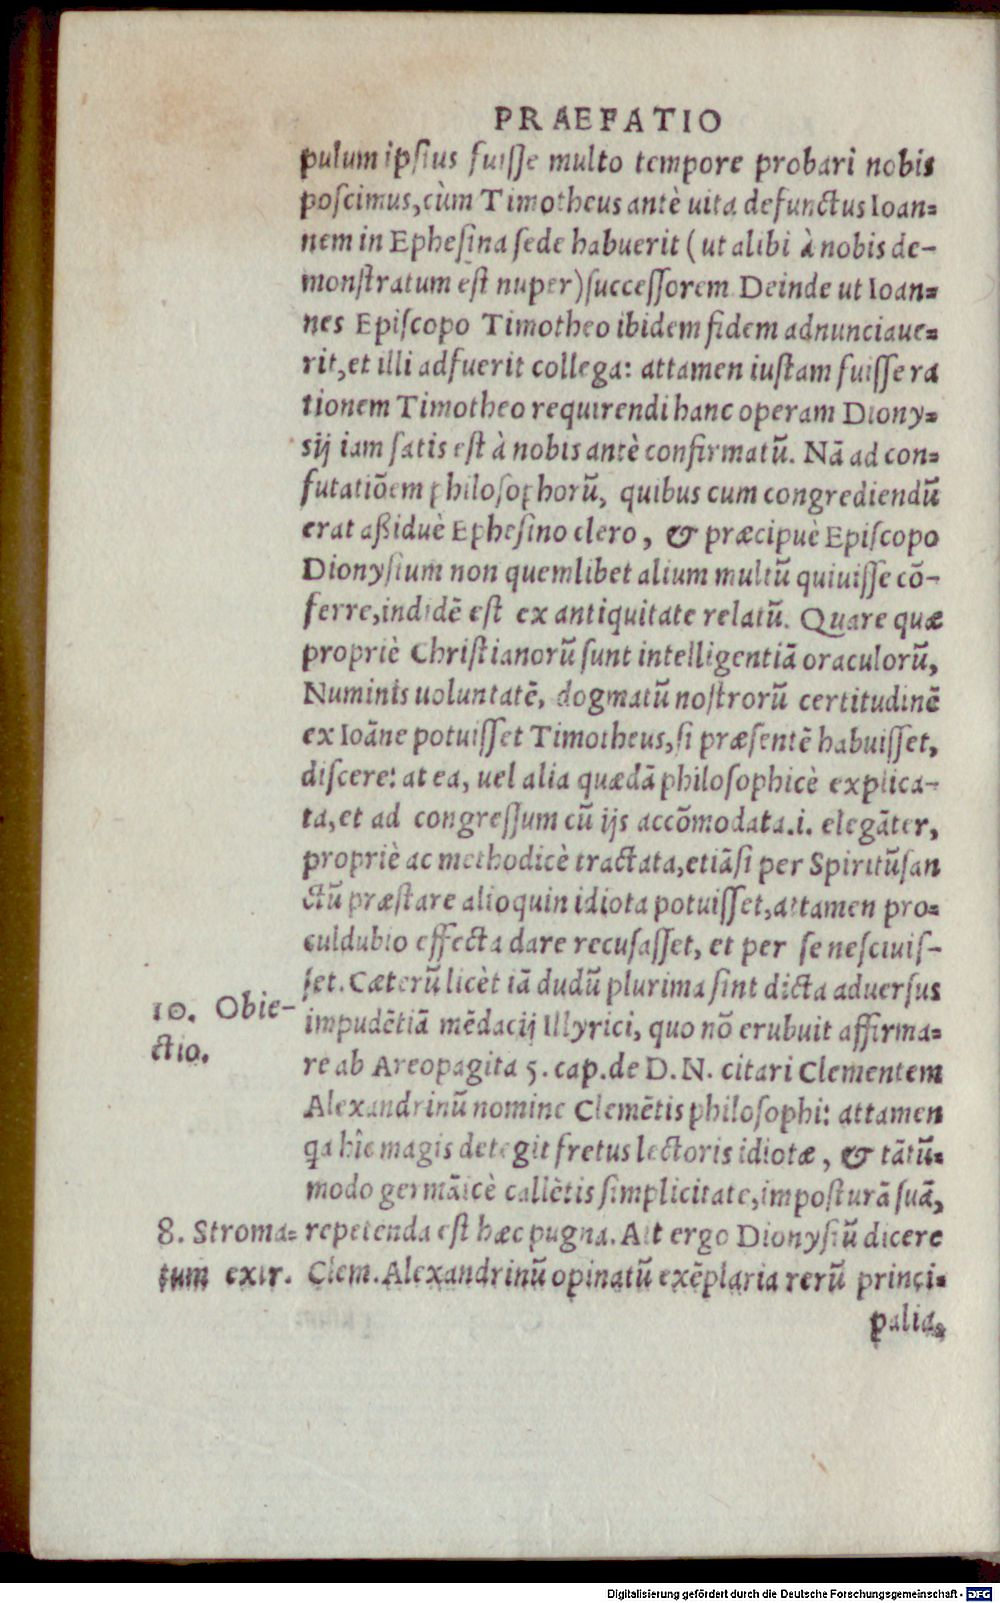 PRAEFATIO
pulum ipſius fuiſſe multo tempore probari nobis
poſcimus, cùm Timotheus antè uita defunctus Ioan=
nem in Epheſina ſede habuerit (ut alibi à nobis de-
monſtratum eſt nuper) ſucceſſorem. Deinde ut Ioan=
nes Epiſcopo Timotheo ibidem fidem adnunciaue=
rit, et illi adfuerit collega: attamen iuſtam fuiſſe ra
tionem Timotheo requirendi hanc operam Diony=
sij iam ſatis eſt à nobis antè confirmatū. Nā ad con=
futatiōem philoſophorū, quibus cum congrediendū
erat aßiduè Epheſino clero, & præcipuè Epiſcopo
Dionyſium non quemlibet alium multū quiuiſſe cō-
ferre, indidē eſt ex antiquitate relatū. Quare quæ
propriè Chriſtianorū ſunt intelligentiā oraculorū,
Numinis uoluntatē, dogmatū noſtrorū certitudinē
ex Ioāne potuiſſet Timotheus, ſi præſentē habuiſſet,
diſcere: at ea, uel alia quædā philoſophicè explica-
ta, et ad congreſſum cū ijs accōmodata .i. elegāter,
propriè ac methodicè tractata, etiāſi per Spiritūſan
ctū præſtare alioquin idiota potuiſſet, attamen pro=
culdubio effecta dare recuſaſſet, et per ſe neſciuiſ-
ſet. Cæterū licèt iā dudū plurima ſint dicta aduerſus
10. Obie-
ctio.
impudētiā mēdacij Illyrici, quo nō erubuit affirma=
re ab Areopagita 5. cap. de D. N. citari Clementem
Alexandrinū nomine Clemētis philoſophi: attamen
qa hîc magis detegit fretus lectoris idiotæ, & tātū=
modo germāicè callētis ſimplicitate, impoſturā ſuā,
8. Stroma=
tum extr.
repetenda eſt hæc pugna. Ait ergo Dionyſiū dicere
Clem. Alexandrinū opinatū exēplaria rerū princi=
palia,
Digitalisierung gefördert durch die Deutsche Forschungsgemeinschaft - DFG